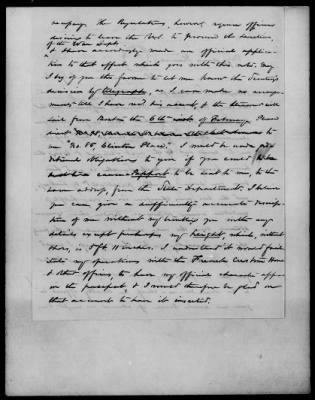 campaign the Regulations, however, require officers
desiring to leave the Dist. to proceed the
of the War Dept.
& I have accordingly made an official applica-
tion to that effect which goes with this note. May
I beg of you the favor to let me know the Sect'y's
decision by telegraph, as I can make no arrange-
ments till I have had his answer, & the steamer will
sail from Boston the 6th of February. Please
direct to
me "No. 86, Clinton Place." I would be under ad-
ditional obligations to you if you could
cause Passport to be sent to me, to the
same address, from the State Department. I believe
you can give a sufficiently accurate descrip-
tion of me without my troubling you with any
details except perhaps my height, which, without
shoes, is 5 ft inches. I understand it would faci-
litate my operations with the French Custom House
& other officers, to have my official character appear
on the passport, & I would therefore be glad on
that account to have it inserted.